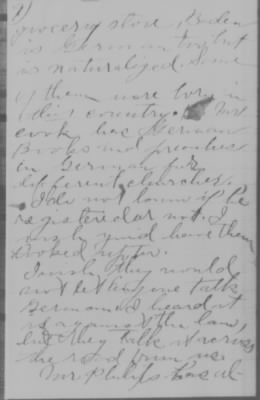 grocery store. Beden
is German too but
is naturalized. Some
of them were born in
this country. Mr
Cook has German
Books and preaches
in German for
different churches.
I do not know if he
registered or not. I
wish you'd have them
looked up for.
I wish they would
not let any one talk
German. I heard it
is against the law,
but they talk it across
the road from us.
Mr. Philips has al-